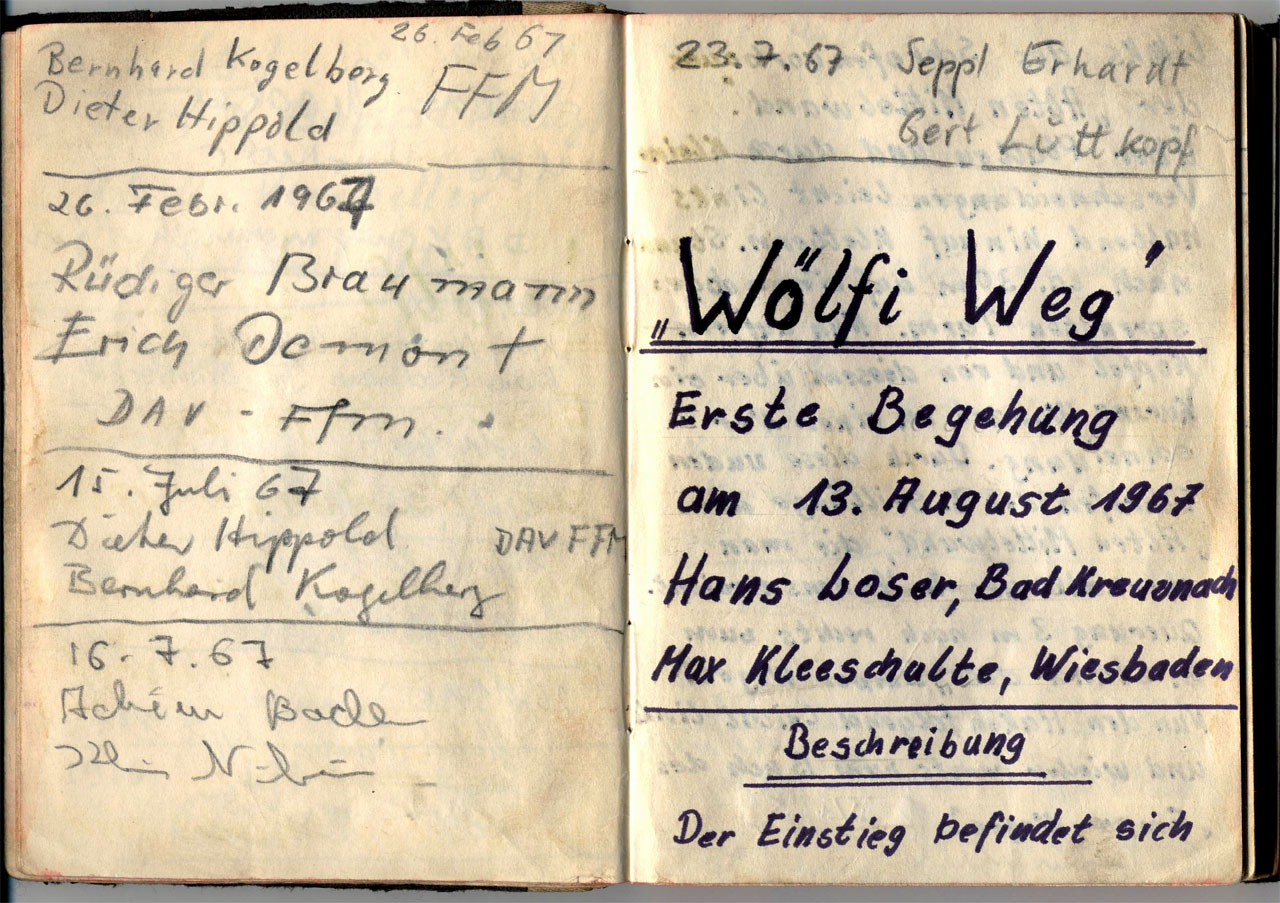 26. Feb 67
Bernhard Kogelberg FFM
Dieter Hippold
26. Febr. 1967
Rüdiger Braumann
Erich Demont
DAV - Ffm.
15. Juli 67
Dieter Hippold DAV FFM
Bernhard Kogelberg
16. 7. 67
Achim
23. 7. 67 Seppl Erhardt
Gert Luttkopf
„Wölfi Weg"
Erste Begehung
am 13. August 1967
Hans Loser, Bad Kreuznach
Max Kleeschulte, Wiesbaden
Beschreibung
Der Einstieg befindet sich